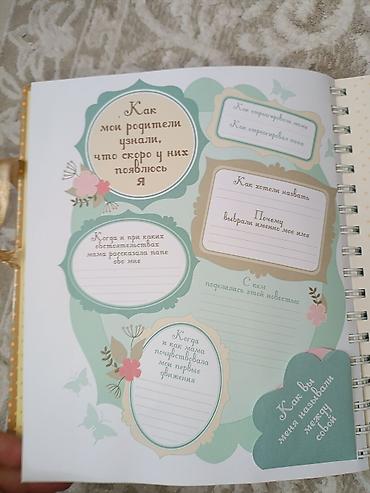 Как
мои родители
узнали,
что скоро у них
появлюсь
Я
Как отреагировала мама
Как отреагировал папа
Как хотели назвать
Почему
выбрали именно мое имя
Когда и при каких
обстоятельствах
мама рассказала папе
обо мне
С кем
поделились этой новостью
Когда
и как мама
почувствовала
мои первые
движения
Как вы
меня называли
между
собой